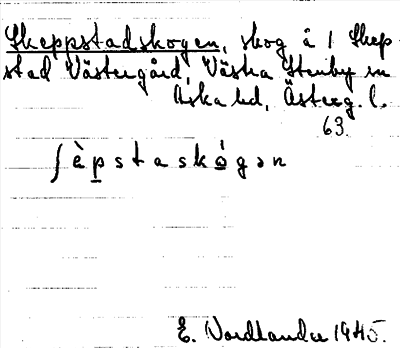 Skeppstadskogen, skog å 1 Skep-
stad Västergård, Västra Stenby sn
Aska hd, Österg. l.
63.
ʃɛ̀p̲staskó̲gən
E. Nordlander 1945.